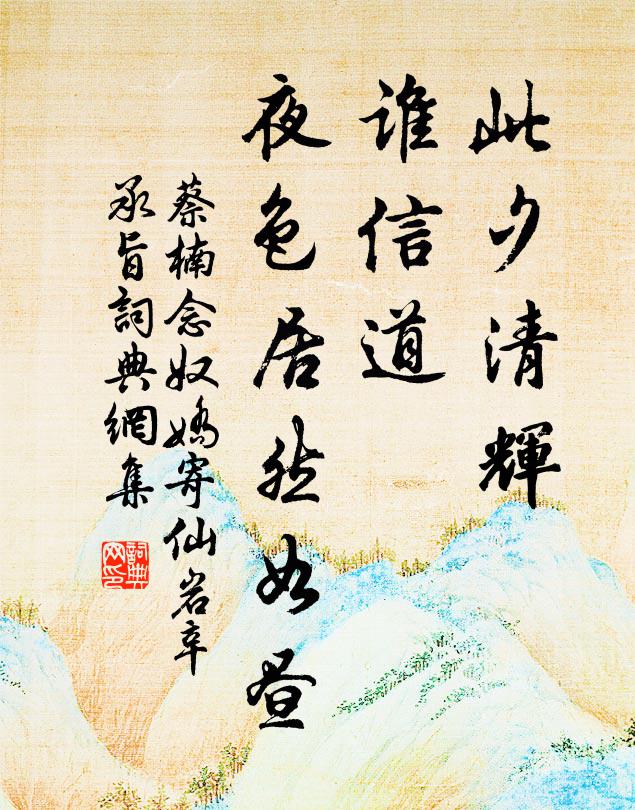 此夕清輝
誰信道
夜色居然如昼
蔡楠念奴嬌寄仙岩辛
承旨詞典網集
詞典網印